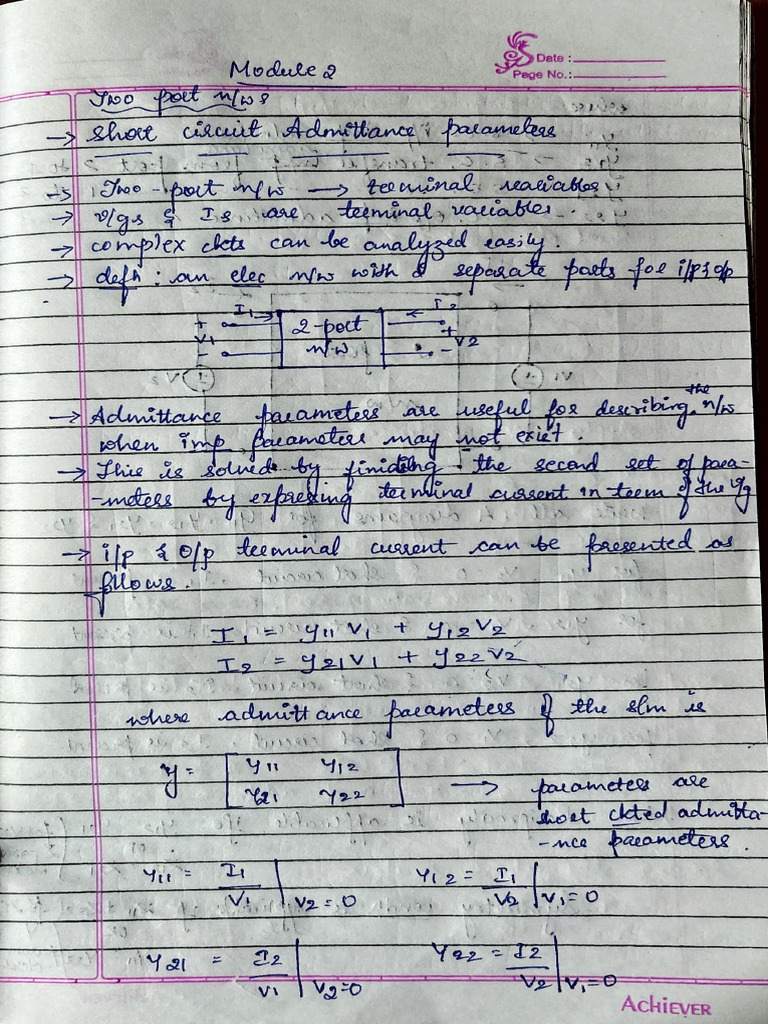 Module 2
Date :
Page No.:
Two port n/ws
→ Short circuit Admittance parameters
→ Two-port n/w → terminal variables
→ v/gs & Is are terminal variables.
→ complex ckts can be analyzed easily.
→ defn: an elec n/w with 2 separate ports for i/p & o/p
I1 → ← I2
+ V1 - 2-port n/w + V2 -
→ Admittance parameters are useful for describing the n/w
when imp parameters may not exist.
→ This is solved by finiding the second set of para-
-meters by expressing terminal current in term of the v/g
→ i/p & O/p terminal current can be presented as
follows.
I1 = y11 V1 + y12 V2
I2 = y21 V1 + y22 V2
where admittance parameters of the s/m is
y = [ y11 y12
y21 y22 ] → parameters are
short ckted admitta-
-nce parameters.
y11 = I1/V1 | V2=0 y12 = I1/V2 | V1=0
y21 = I2/V1 | V2=0 y22 = I2/V2 | V1=0
ACHIEVER